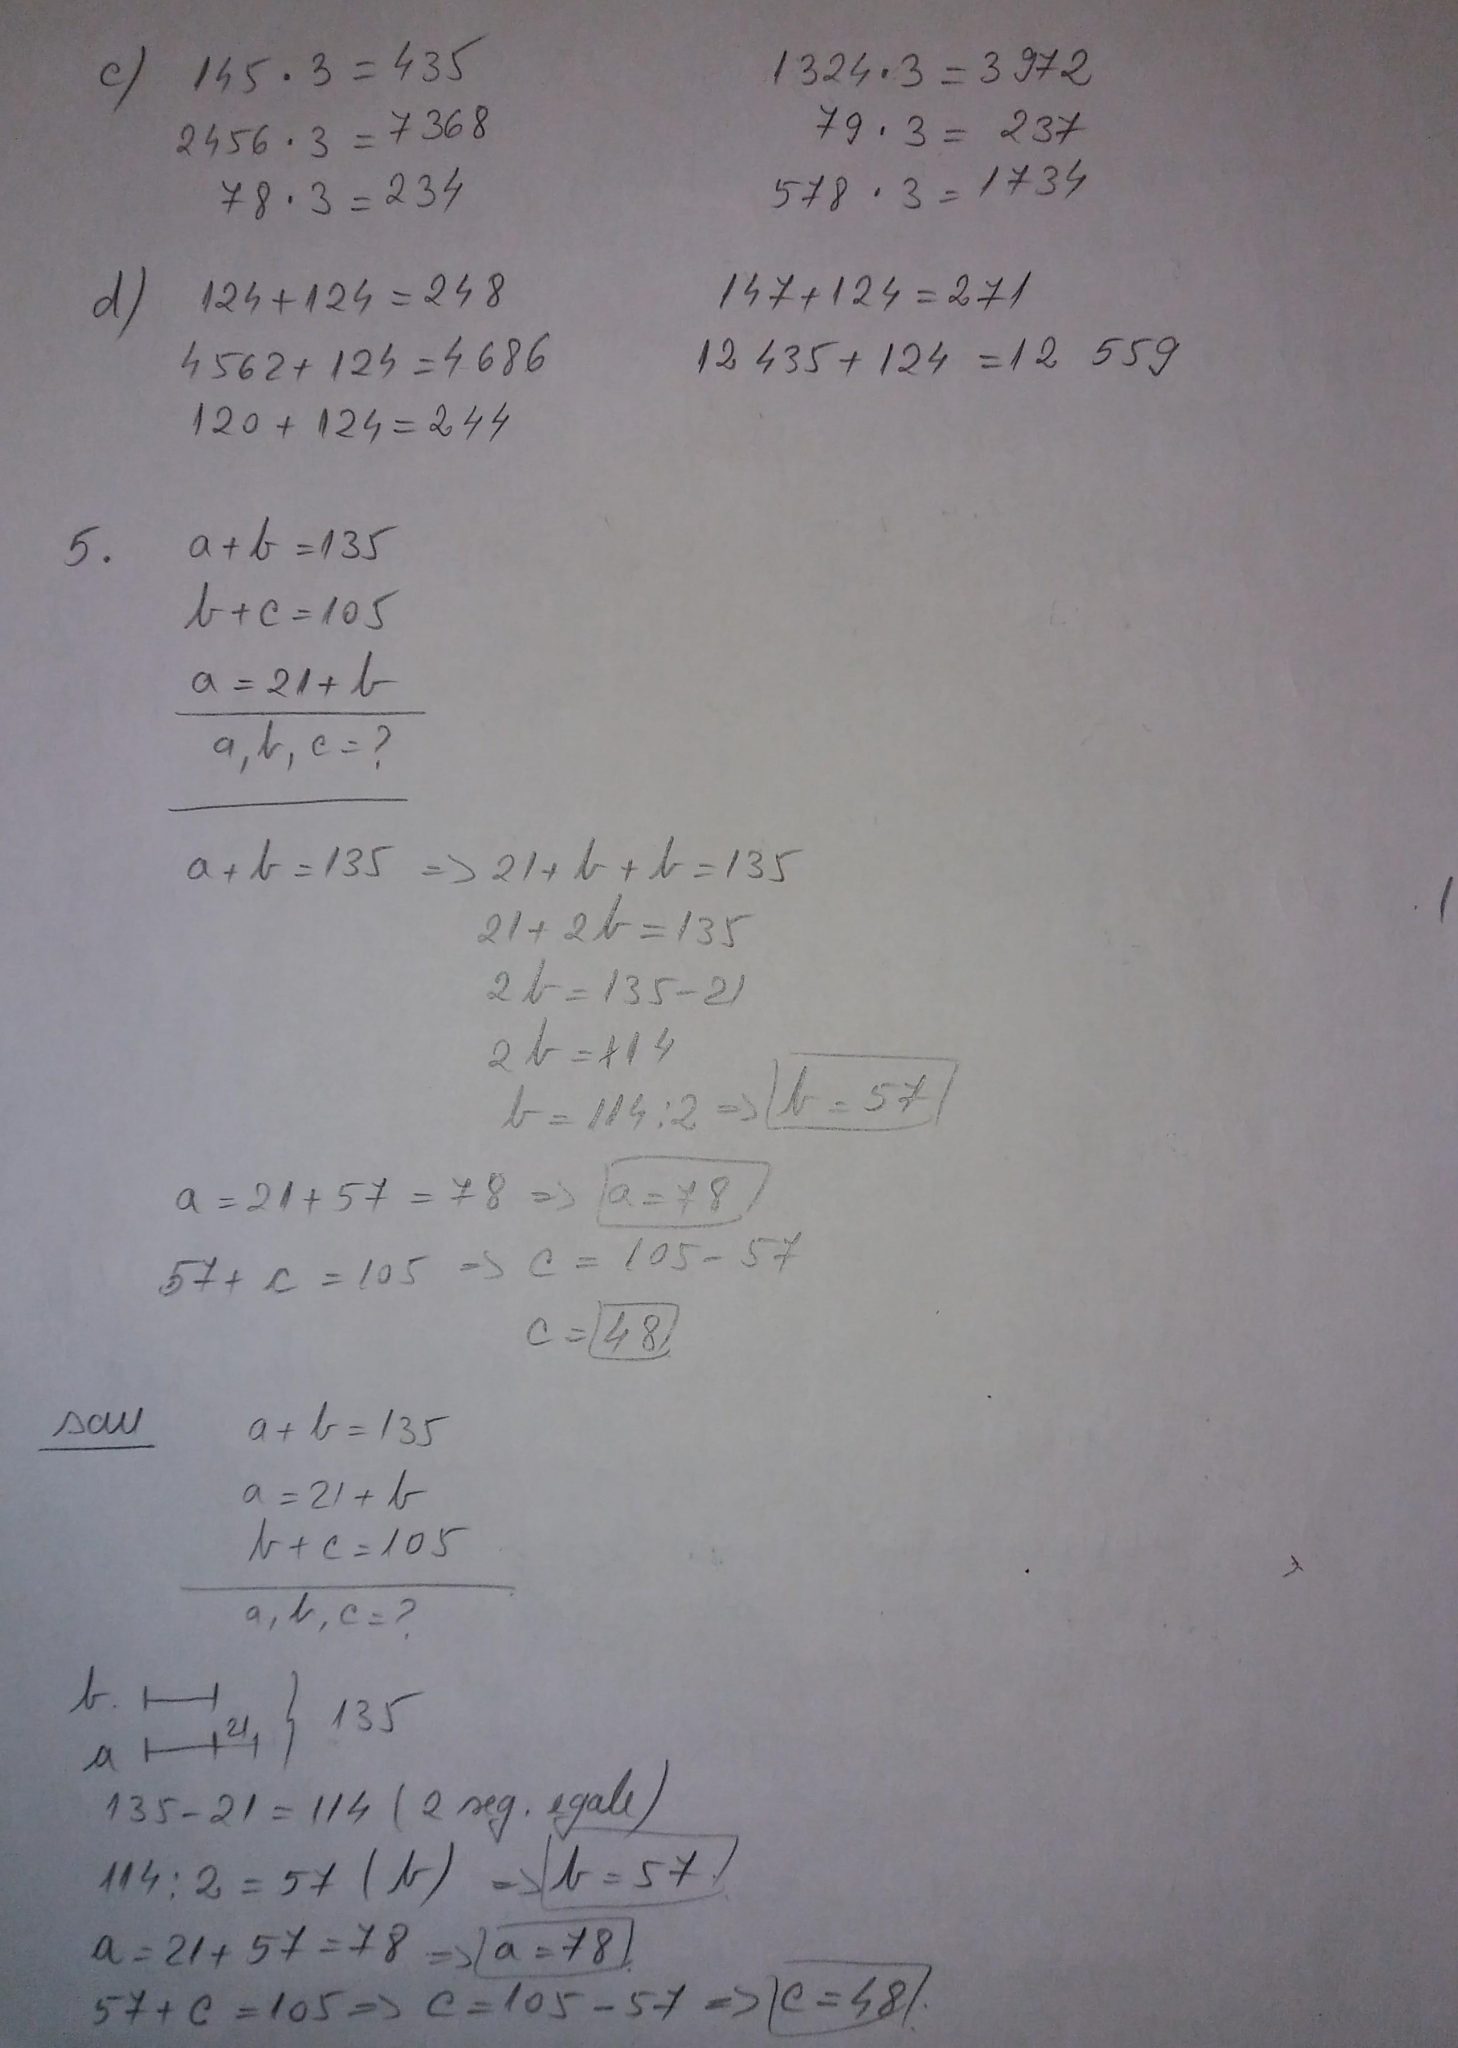 c) 145 · 3 = 435
2456 · 3 = 7368
78 · 3 = 234
1324 · 3 = 3972
79 · 3 = 237
578 · 3 = 1734
d) 124 + 124 = 248
4562 + 124 = 4686
120 + 124 = 244
147 + 124 = 271
12 435 + 124 = 12 559
5. a + b = 135
b + c = 105
a = 21 + b
a, b, c = ?
a + b = 135 => 21 + b + b = 135
21 + 2b = 135
2b = 135 - 21
2b = 114
b = 114 : 2 => b = 57
a = 21 + 57 = 78 => a = 78
57 + c = 105 => c = 105 - 57
c = 48
sau a + b = 135
a = 21 + b
b + c = 105
a, b, c = ?
b. } 135
a 21
135 - 21 = 114 (2 seg. egale)
114 : 2 = 57 (b) => b = 57.
a = 21 + 57 = 78 => a = 78.
57 + c = 105 => c = 105 - 57 => c = 48.